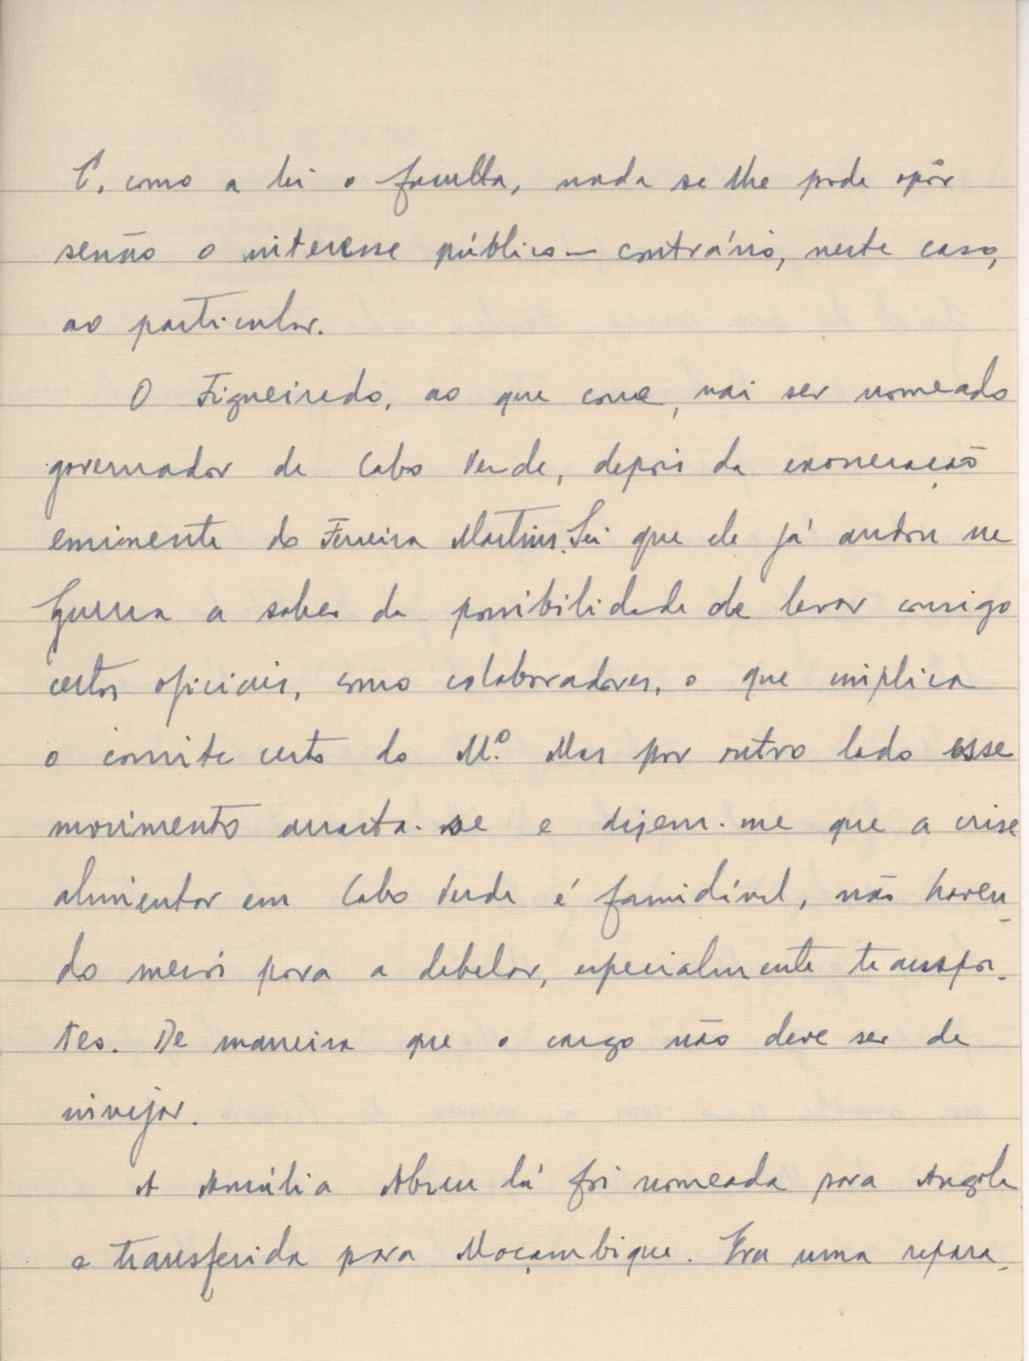 E, como a lei o faculta, nada se lhe pode opôr
senão o interesse público — contrário, neste caso,
ao particular.
O Figueiredo, ao que corre, vai ser nomeado
governador de Cabo Verde, depois da exoneração
eminente do Ferreira Martins. Sei que ele já andou na
Guerra a saber da possibilidade de levar consigo
certos oficiais, como colaboradores, o que implica
o convite certo do M.º Mas por outro lado esse
movimento arrasta-se e dizem-me que a crise
alimentar em Cabo Verde é formidável, não haven-
do meios para a debelar, especialmente transpor-
tes. De maneira que o cargo não deve ser de
invejar.
A Amália Abreu lá foi nomeada para Angola
e transferida para Moçambique. Era uma repara-